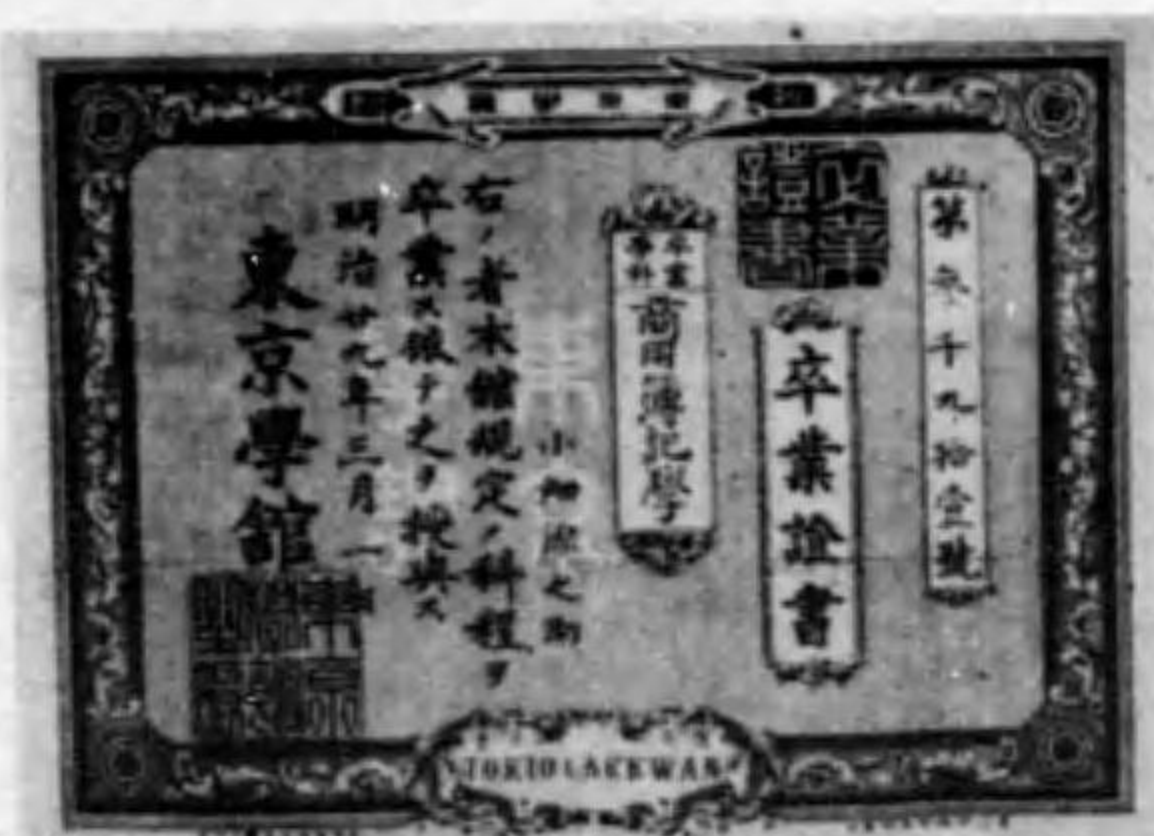 第參千九拾壹號
卒業證書
卒業學科
商用簿記學
小
之助
右ノ者本館規定ノ科程ヲ
卒業ス依テ之ヲ授與ス
明治廿九年三月一
東京學館
TOKIO GACKWAN